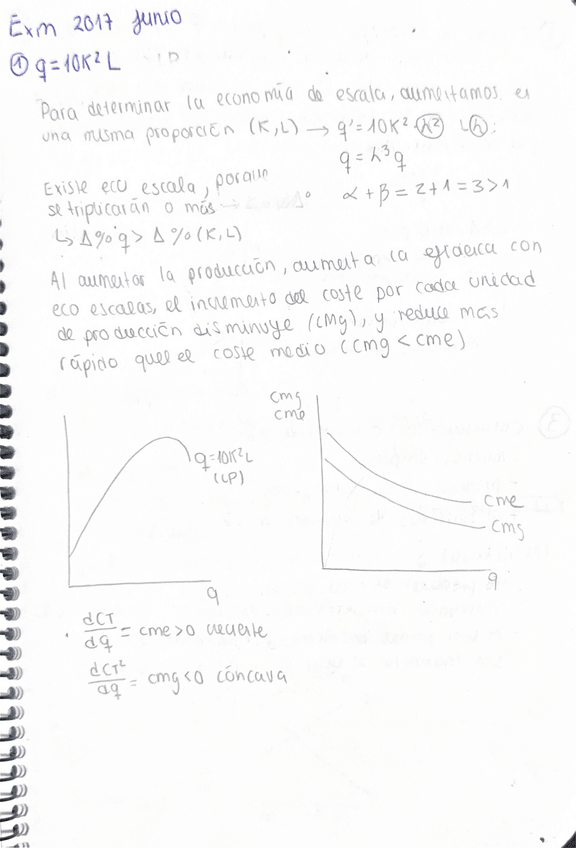 Exm 2017 junio
① q=10K²L LP
Para determinar la economía de escala, aumentamos en
una misma proporción (K,L) → q'=10K²·h² Lh:
q=h³q
Existe eco escala, porque
se triplicarán o más → α+β=2+1=3>1
↳ Δ%q > Δ%(K,L)
Al aumentar la producción, aumenta la eficiencia con
eco escalas, el incremento del coste por cada unidad
de producción disminuye (CMg), y reduce más
rápido que el coste medio (cmg < cme)
cmg
cme
q=10K²L
(LP)
cme
cmg
q
q
· dCT/dq = cme>0 creciente
dCT²/dq = cmg<0 cóncava